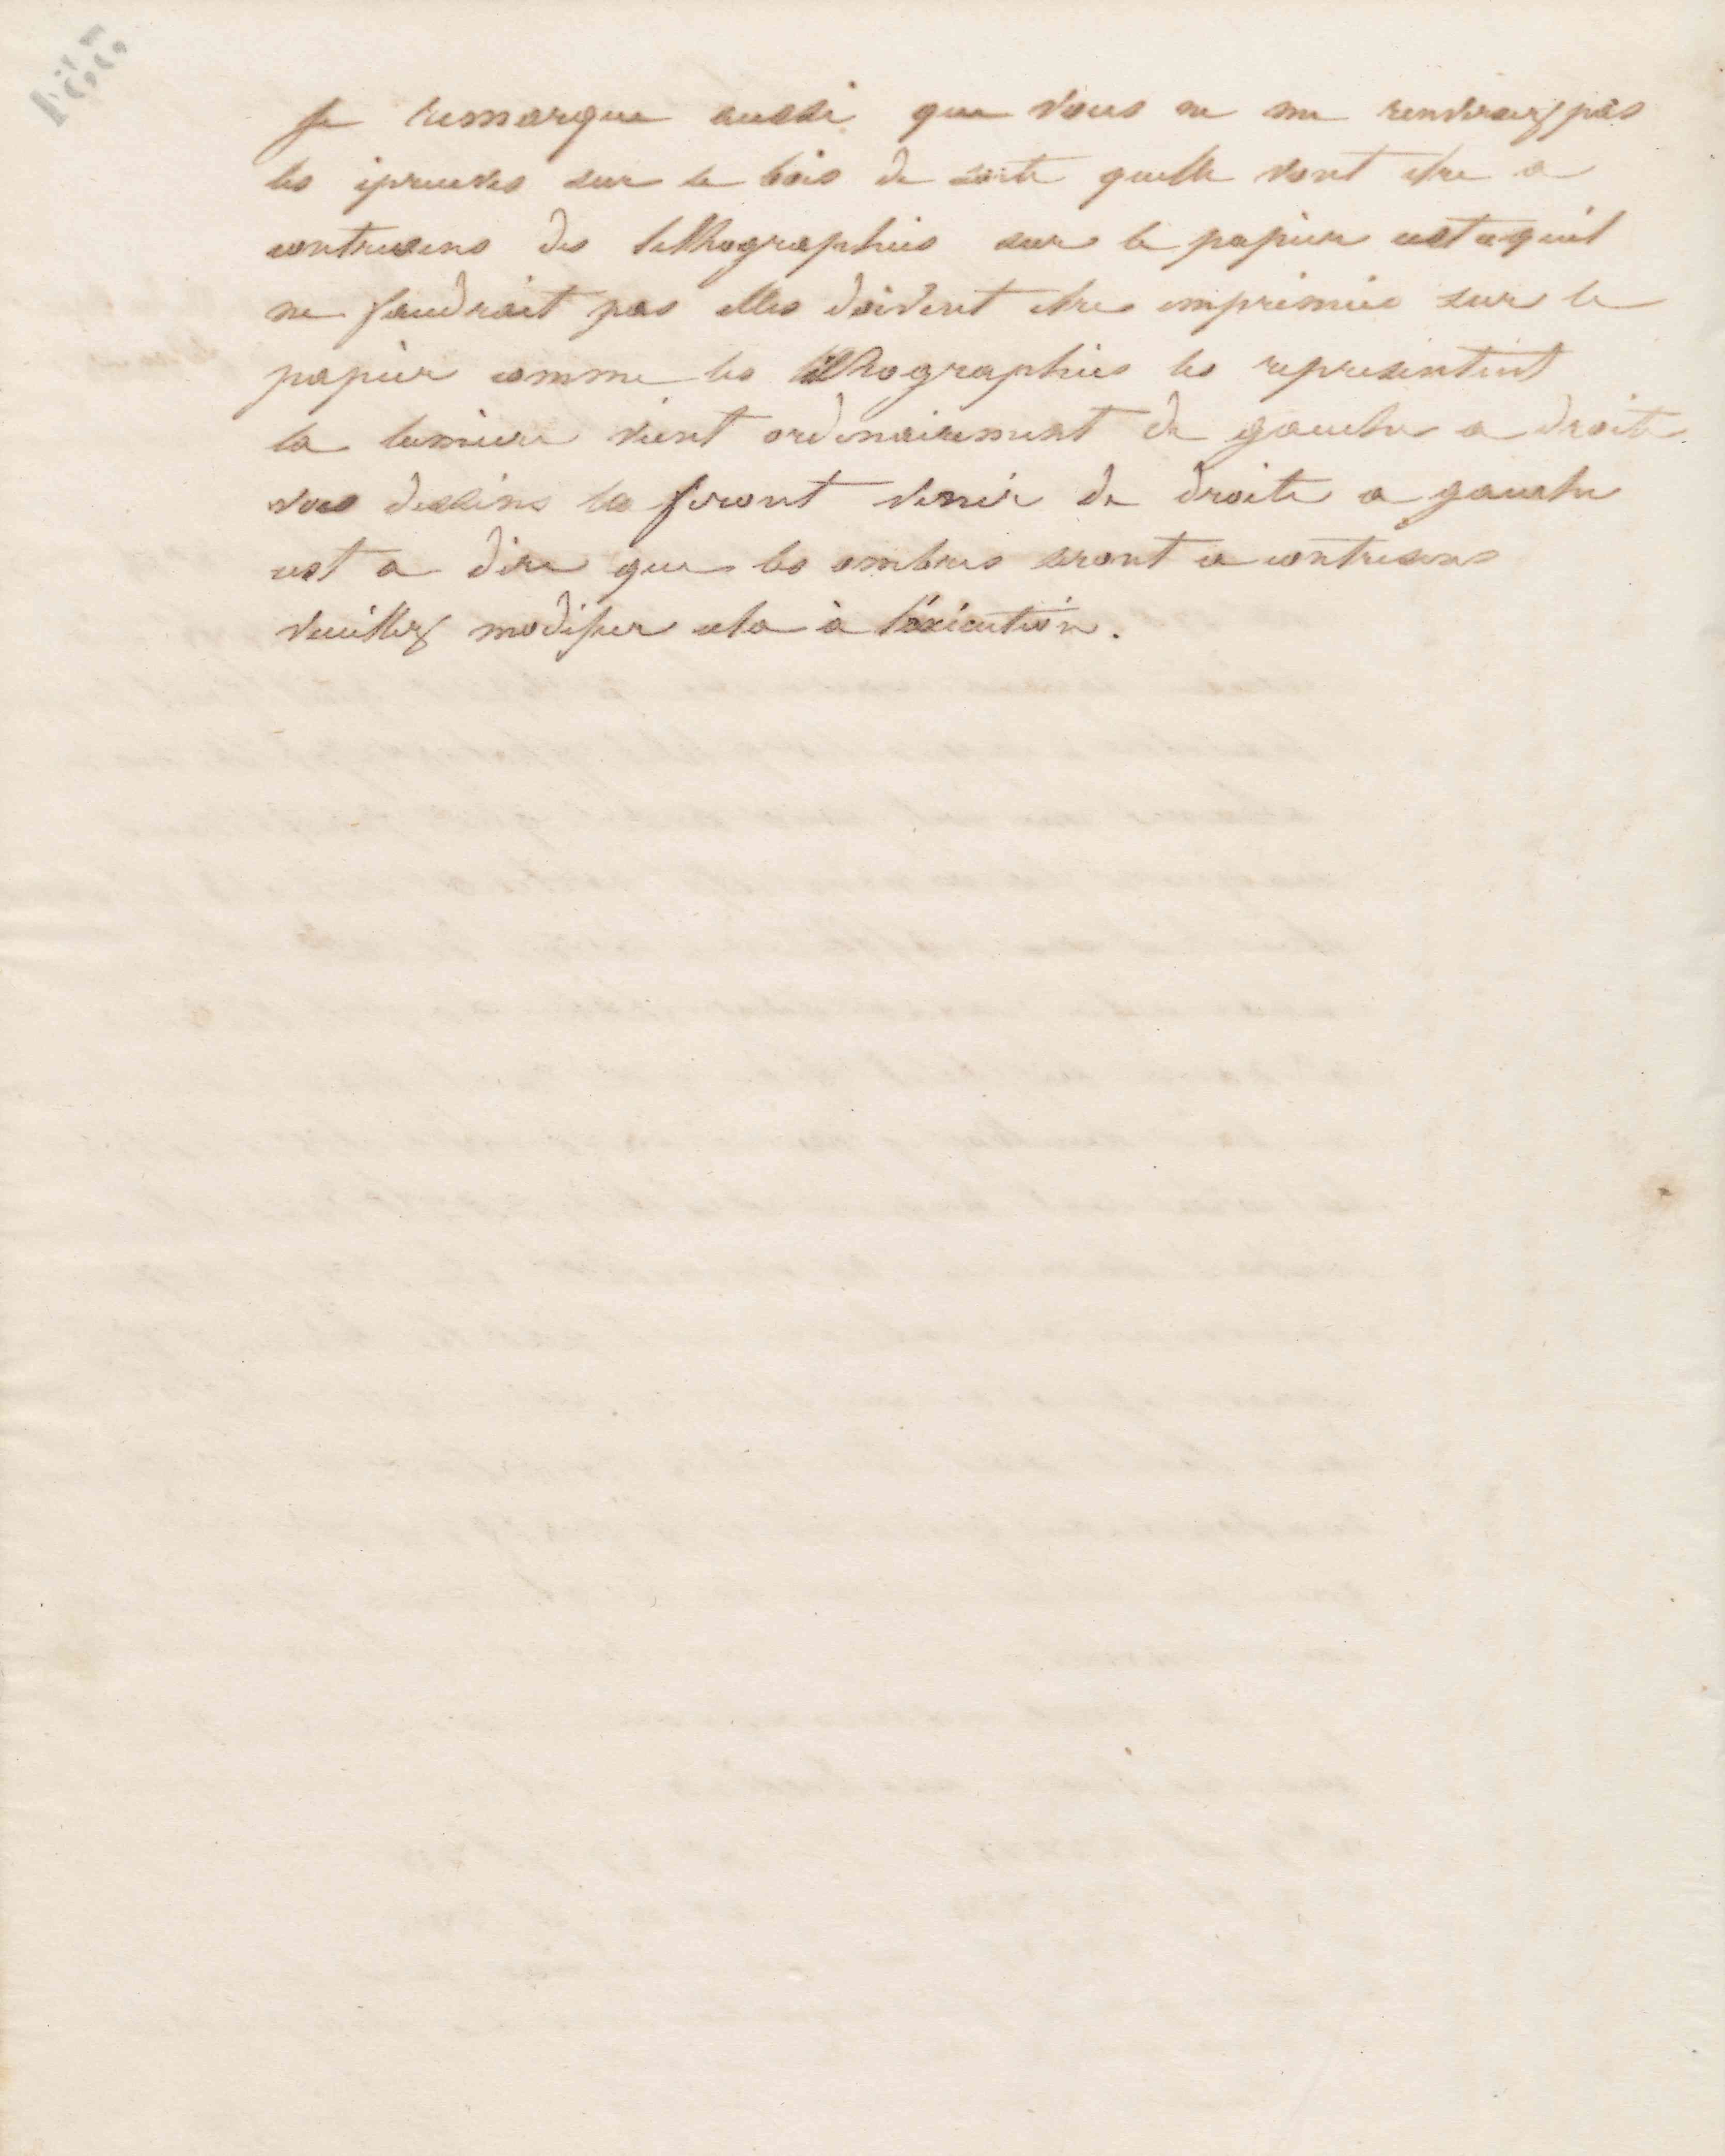 Je remarque aussi que vous ne me renversez pas
les epreuves sur le bois de sorte quelle vont etre a
contresens des lithographies sur le papier cest cequil
ne faudrait pas elles doivent etre imprimée sur le
papier comme les lithographies les representent
la lumiere vient ordinairement de gauche a droite
vous dessins la feront venir de droite a gauche
cest a dire que les ombres seront a contresens
veuillez modifier cela à l'éxécution.